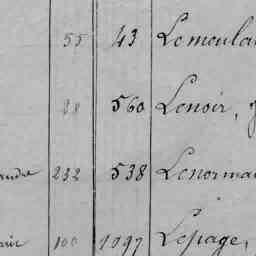 55 43 Lemoula
28 560 Lenoir,
232 538 Lenorma
100 1097 Lepage,